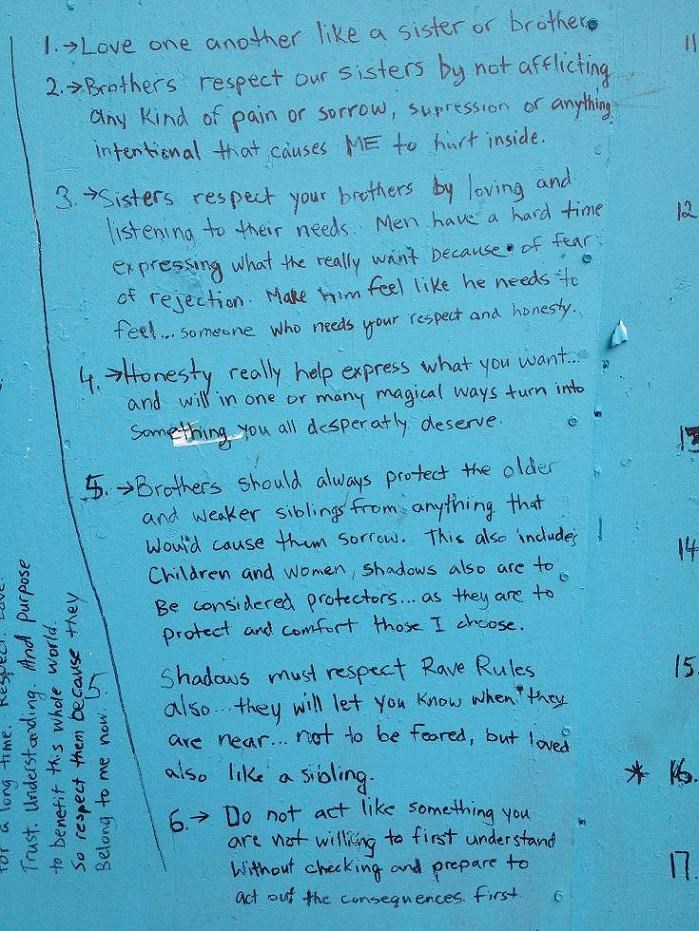 1.→Love one another like a sister or brother.
2.→Brothers respect our sisters by not afflicting
any kind of pain or sorrow, supression or anything
intentional that causes ME to hurt inside.
3.→Sisters respect your brothers by loving and
listening to their needs. Men have a hard time
expressing what the really want because of fear
of rejection. Make him feel like he needs to
feel... someone who needs your respect and honesty.
4.→Honesty really help express what you want...
and will in one or many magical ways turn into
something you all desperatly deserve.
5.→Brothers should always protect the older
and weaker siblings from anything that
would cause them sorrow. This also includes
Children and women, shadows also are to
Be considered protectors... as they are to
protect and comfort those I choose.
Shadows must respect Rave Rules
also... they will let you know when they
are near... not to be feared, but loved
also like a sibling.
6.→ Do not act like something you
are not willing to first understand
Without checking and prepare to
act out the consequences first.
for a long time. Respect. Love.
Trust. Understanding. And purpose
to benefit this whole world.
So respect them because they
Belong to me now.
11
12
13
14
15.
* 16.
17.